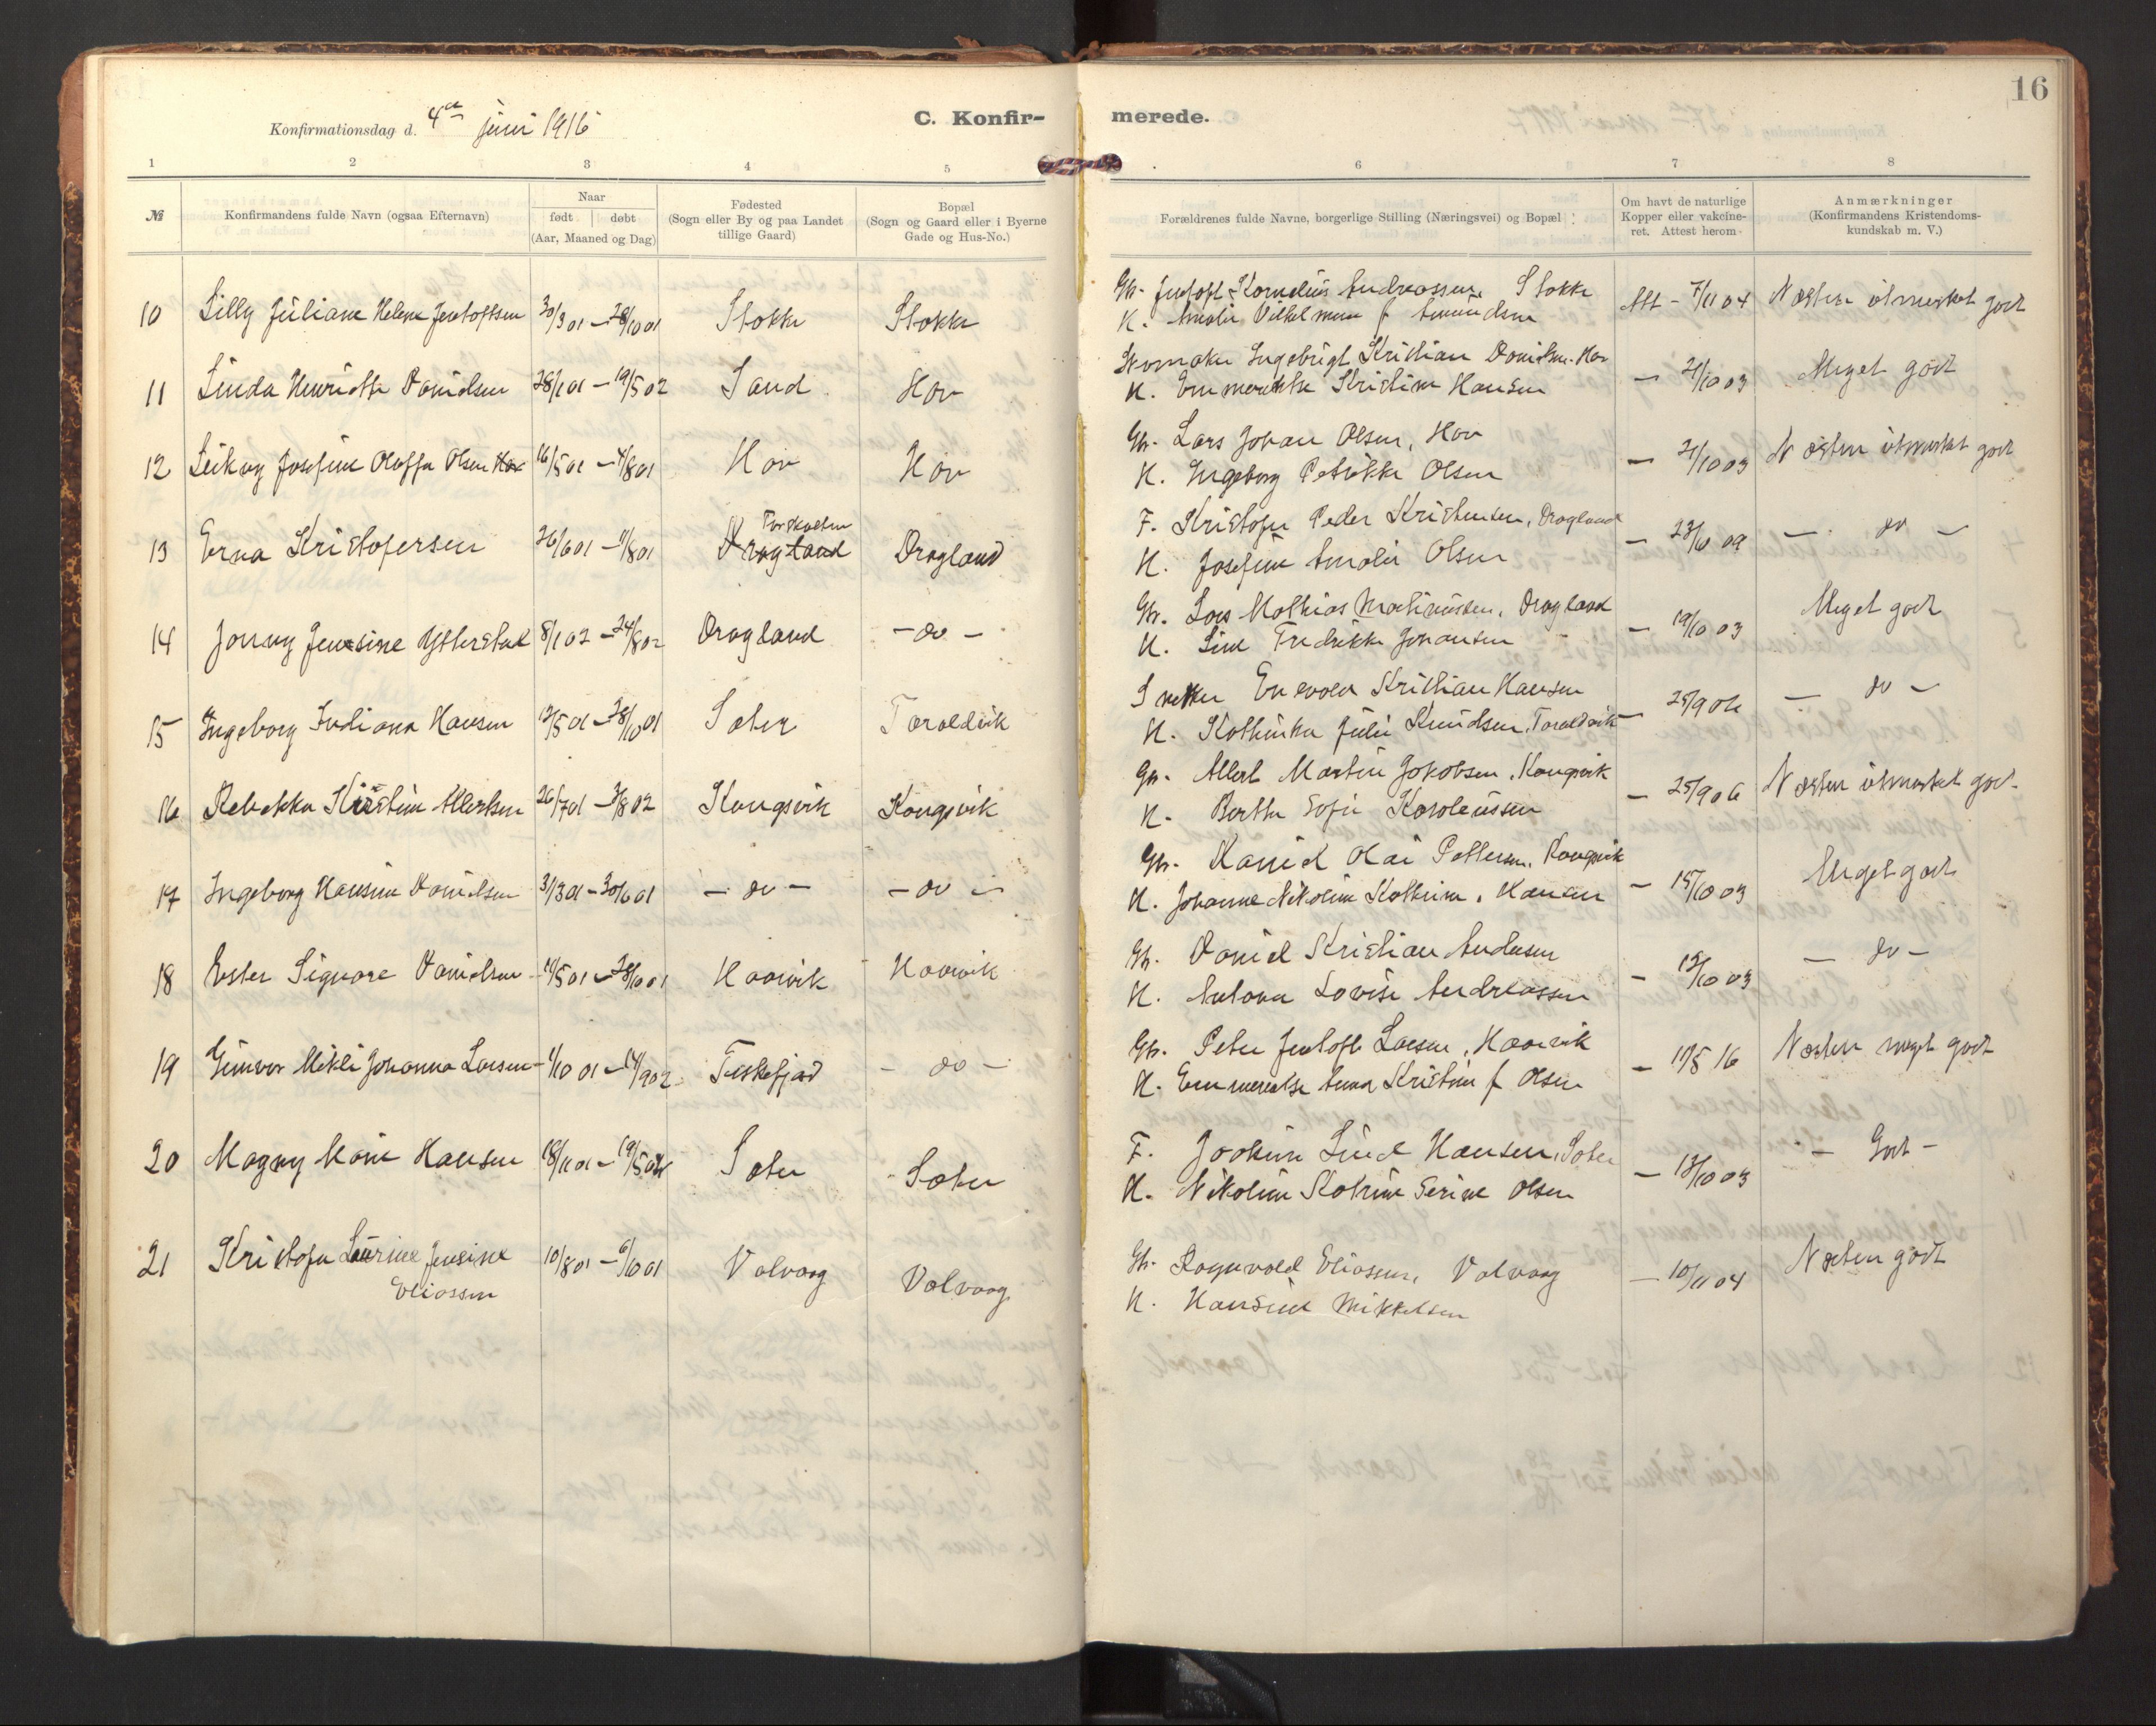 16
Konfirmationsdag d. 4de juni 1916
C. Konfir-
merede.
1 2 3 4 5 6 7 8
№
Konfirmandens fulde Navn (ogsaa Efternavn)
Naar
født døbt
(Aar, Maaned og Dag)
Fødested
(Sogn eller By og paa Landet
tillige Gaard)
Bopæl
(Sogn og Gaard eller i Byerne
Gade og Hus-No.)
Forældrenes fulde Navne, borgerlige Stilling (Næringsvei) og Bopæl
Om havt de naturlige
Kopper eller vakcine-
ret. Attest herom
Anmærkninger
(Konfirmandens Kristendoms-
kundskab m. V.)
10 Lilly Juliane Helene Jentoftsen 30/3 01 – 28/10 01 Stokke Stokke
Gb. Jentoft Kornelius Andreassen, Stokke
K. Amalie Vilhelmine f Amundsen
Att – 7/11 04 Næsten utmerket godt
11 Linda Henriette Danielsen 28/1 01 – 19/5 02 Sand Hov
Ingebrigt Kristian Danielsen. Hov
K. Emmerentse Kristine Hansen
– 21/10 03 Meget godt
12 Josefine Oloffa Olsen 16/5 01 – 4/8 01 Hov Hov
Gb. Lars Johan Olsen, Hov
K. Ingeborg Petrikke Olsen
– 21/10 03 Næsten utmerket godt
13 Erna Kristofersen 26/6 01 – 11/8 01 Dragland Dragland
F. Kristofer Peder Kristensen, Dragland
K. Josefine Amalie Olsen
– 23/6 09 – do –
14 Jonny Jensine Ytterstad 8/1 02 – 24/8 02 Dragland – do –
Gb. Lars Mathias Martinussen, Dragland
K. Line Fredrikke Johansen
– 19/10 03 Meget godt
15 Ingeborg Indiana Hansen 12/5 01 – 28/10 01 Sæter Taraldvik
Snekker Enevold Kristian Hansen
K. Kathinka Julie Knudsen, Taraldvik
– 25/9 06 – do –
16 Rebekka Kristine Albertsen 26/7 01 – 3/8 02 Kongsvik Kongsvik
Gb. Albert Martin Jakobsen, Kongsvik
K. Berthe Sofie Karoleussen
– 25/9 06 Næsten utmerket godt
17 Ingeborg Hansine Danielsen 31/3 01 – 30/6 01 – do – – do –
Gb. Daniel Olai Pettersen, Kongsvik
K. Johanne Nikoline Kathrine, Hansen
– 15/10 03 Meget godt
18 Ester Signore Danielsen 11/5 01 – 28/10 01 Haarvik Haarvik
Gb. Daniel Kristian Andersen
K. Antona Lovise Andreassen
– 19/10 03 – do –
19 Gunvor Mikli Johanna Larsen 1/10 01 – 14/9 02 Fiskefjord – do –
Gb. Peter Jentoft Larsen, Haarvik
K. Emmerentse Anna Kristine f Olsen
– 17/5 16 Næsten meget godt
20 Magny Marie Hansen 18/11 01 – 19/5 02 Sæter Sæter
F. Joakim Lind Hansen, Sæter
K. Nikoline Katrine Serine Olsen
– 13/10 03 – Godt –
21 Kristofa Laurine Jensine
Eliassen
10/8 01 – 6/10 01 Valvaag Valvaag
Gb. Ragnvald Eliassen, Valvaag
K. Hansine Mikkelsen
– 10/11 04 Næsten godt